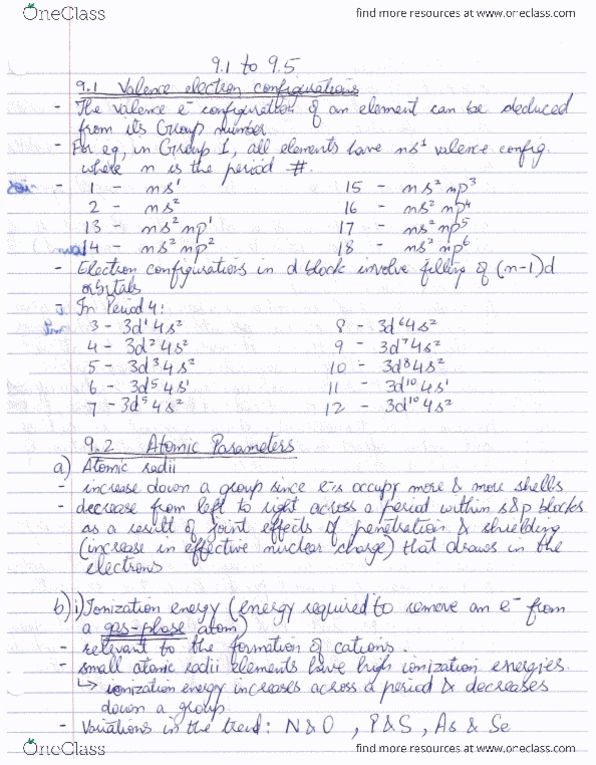 OneClass find more resources at www.oneclass.com
9.1 to 9.5
9.1 Valence electron configurations
- The valence e⁻ configuration of an element can be deduced
from its Group number.
- For eg, in Group 1, all elements have ns¹ valence config.
where n is the period #.
1 - ns¹ 15 - ns² np³
2 - ns² 16 - ns² np⁴
13 - ns² np¹ 17 - ns² np⁵
14 - ns² np² 18 - ns² np⁶
- Electron configurations in d block involve filling of (n-1)d
orbitals
- In Period 4:
3 - 3d¹ 4s² 8 - 3d⁶ 4s²
4 - 3d² 4s² 9 - 3d⁷ 4s²
5 - 3d³ 4s² 10 - 3d⁸ 4s²
6 - 3d⁵ 4s¹ 11 - 3d¹⁰ 4s¹
7 - 3d⁵ 4s² 12 - 3d¹⁰ 4s²
9.2 Atomic Parameters
a) Atomic radii
- increase down a group since e⁻s occupy more & more shells
- decrease from left to right across a period within s&p blocks
as a result of joint effects of penetration & shielding
(increase in effective nuclear charge) that draws in the
electrons
b) i) Ionization energy (energy required to remove an e⁻ from
a gas-phase atom)
- relevant to the formation of cations.
- small atomic radii elements have high ionization energies.
↳ ionization energy increases across a period & decreases
down a group.
- Variations in the trend: N & O , P & S , As & Se
OneClass find more resources at www.oneclass.com